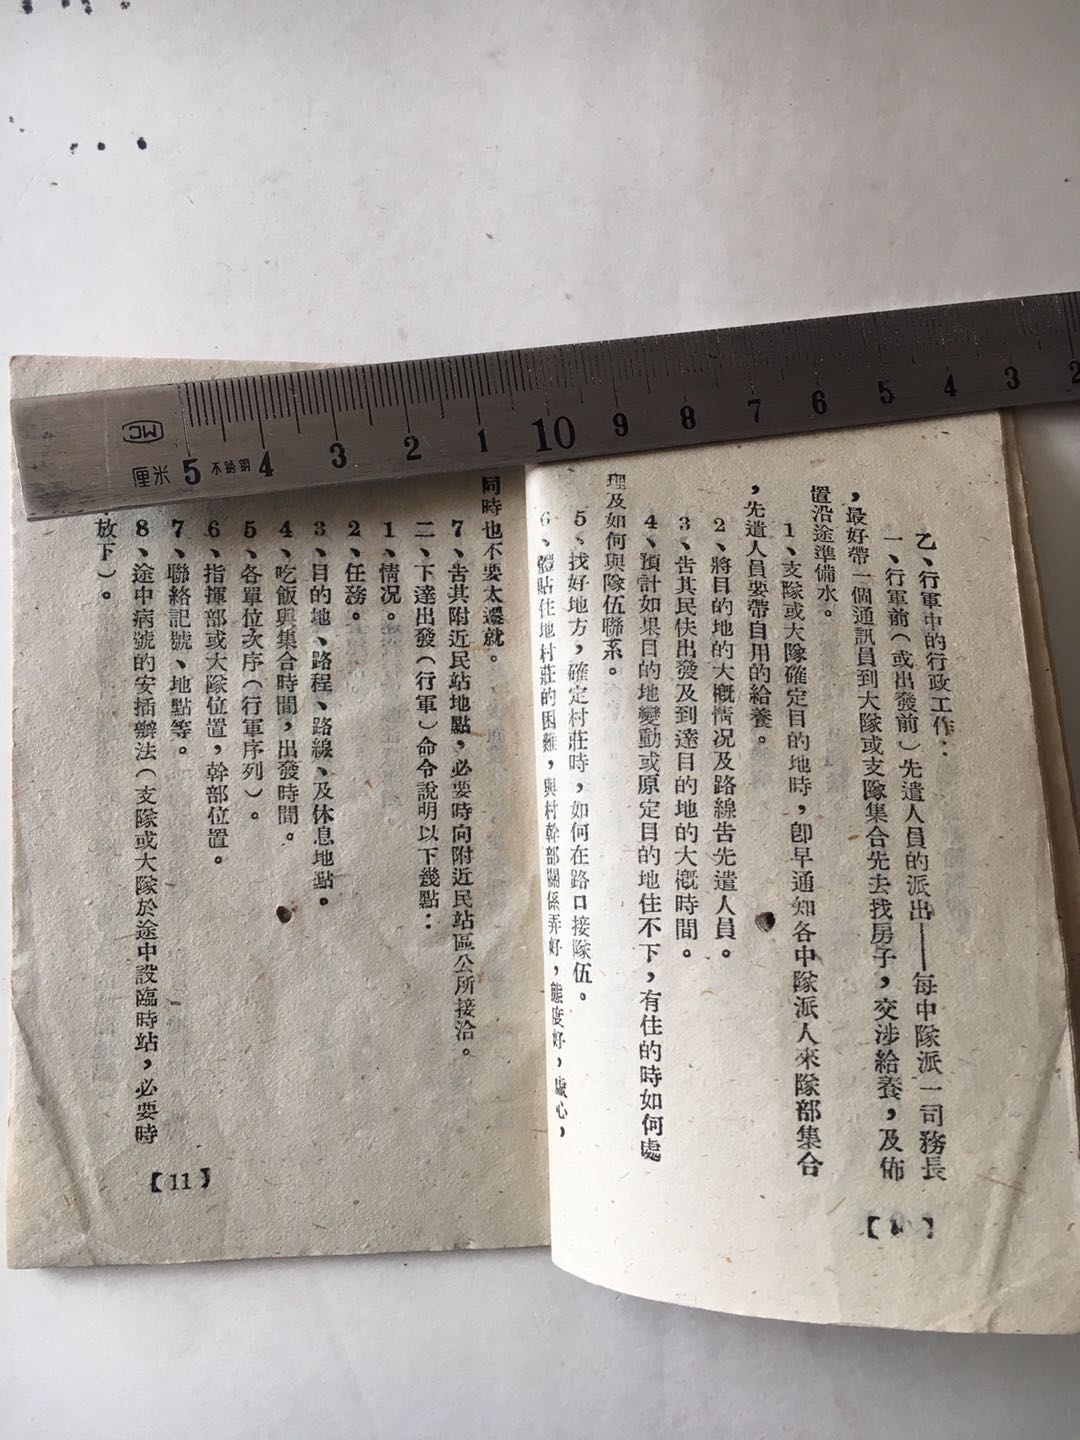 乙、行軍中的行政工作：
一、行軍前（或出發前）先遣人員的派出——每中隊派一司務長
，最好帶一個通訊員到大隊或支隊集合先去找房子，交涉給養，及佈
置沿途準備水。
1、支隊或大隊確定目的地時，卽早通知各中隊派人來隊部集合
，先遣人員要帶自用的給養。
2、將目的地的大槪情况及路線告先遣人員。
3、告其民伕出發及到達目的地的大槪時間。
4、預計如果目的地變動或原定目的地住不下，有住的時如何處
理及如何與隊伍聯系。
5、找好地方，確定村莊時，如何在路口接隊伍。
6、體貼住地村莊的困難，與村幹部關係弄好，態度好，虛心，
【1】
同時也不要太遷就。
7、告其附近民站地點，必要時向附近民站區公所接洽。
二、下達出發（行軍）命令說明以下幾點：
1、情况。
2、任務。
3、目的地、路程、路線、及休息地點。
4、吃飯與集合時間，出發時間。
5、各單位次序（行軍序列）。
6、指揮部或大隊位置，幹部位置。
7、聯絡記號、地點等。
8、途中病號的安插辦法（支隊或大隊於途中設臨時站，必要時
放下）。
【11】
厘米 5 不銹鋼 4 3 2 1 10 9 8 7 6 5 4 3 2